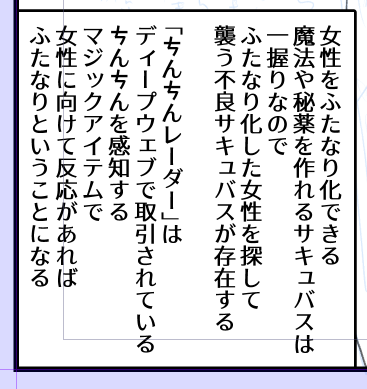 女性をふたなり化できる
魔法や秘薬を作れるサキュバスは
一握りなので
ふたなり化した女性を探して
襲う不良サキュバスが存在する
「ちんちんレーダー」は
ディープウェブで取引されている
ちんちんを感知する
マジックアイテムで
女性に向けて反応があれば
ふたなりということになる